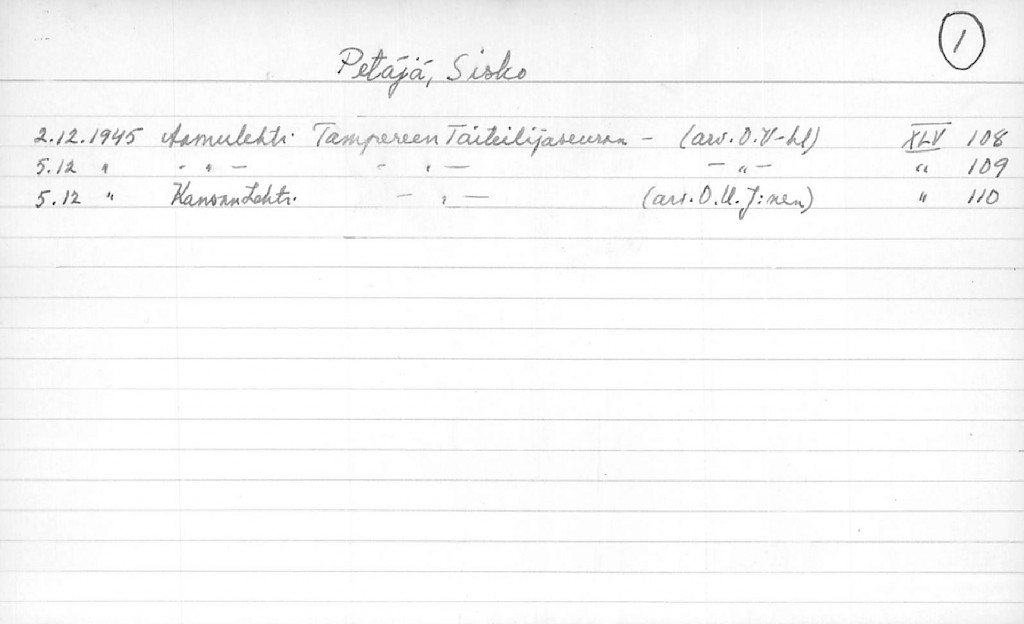 1
Petäjä, Sisko
2.12.1945 Aamulehti. Tampereen Taiteilijaseuran - (arv. O.V-hl) XLV 108
5.12 " - " - - " - - " - " 109
5.12 " Kansan Lehti. - " - (arv. O.U.J:nen) " 110